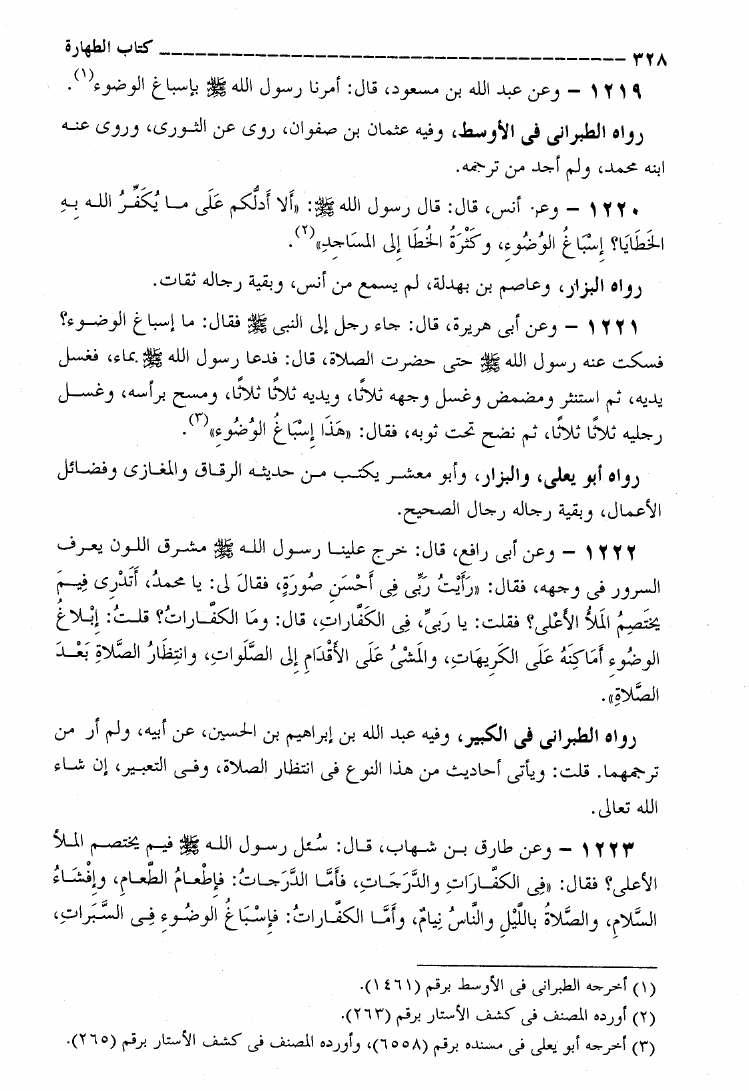 ٣٢٨ ـــــــــــــــــــــــــــــــــــــــــــــــــــــــــــــ كتاب الطهارة
١٢١٩ – وعن عبد الله بن مسعود، قال: أمرنا رسول الله ﷺ بإسباغ الوضوء(١).
رواه الطبرانى فى الأوسط، وفيه عثمان بن صفوان، روى عن الثورى، وروى عنه
ابنه محمد، ولم أجد من ترجمه.
١٢٢٠ – وعن أنس، قال: قال رسول الله ﷺ: «ألا أدلُّكم عَلَى ما يُكَفِّرُ الله بِهِ
الخَطَايَا؟ إِسْبَاغُ الوُضُوءِ، وكَثْرَةُ الخُطَا إلى المسَاجدِ»(٢).
رواه البزار، وعاصم بن بهدلة، لم يسمع من أنس، وبقية رجاله ثقات.
١٢٢١ – وعن أبى هريرة، قال: جاء رجل إلى النبى ﷺ فقال: ما إسباغ الوضوء؟
فسكت عنه رسول الله ﷺ حتى حضرت الصلاة، قال: فدعا رسول الله ﷺ بماء، فغسل
يديه، ثم استنثر ومضمض وغسل وجهه ثلاثًا، ويديه ثلاثًا ثلاثًا، ومسح برأسه، وغسل
رجليه ثلاثًا ثلاثًا، ثم نضح تحت ثوبه، فقال: «هَذَا إِسْبَاغُ الوُضُوءِ»(٣).
رواه أبو يعلى، والبزار، وأبو معشر يكتب من حديثه الرقاق والمغازى وفضائل
الأعمال، وبقية رجاله رجال الصحيح.
١٢٢٢ – وعن أبى رافع، قال: خرج علينا رسول الله ﷺ مشرق اللون يعرف
السرور فى وجهه، فقال: «رَأَيْتُ رَبِّى فِى أَحْسَنِ صُورَةٍ، فقالَ لى: يا محمدُ، أَتَدْرِى فِيمَ
يخْتَصِمُ المَلأُ الأَعْلى؟ فقلت: يا رَبىِّ، فِى الكَفَّاراتِ، قال: ومَا الكفَّاراتُ؟ قلتُ: إِبْلاغُ
الوضُوءِ أمَاكِنَهُ عَلَى الكَرِيهَاتِ، والمَشْىُ عَلَى الأَقْدَامِ إِلى الصَّلَواتِ، وانتِظَارُ الصَّلاةِ بَعْدَ
الصَّلاةِ».
رواه الطبرانى فى الكبير، وفيه عبد الله بن إبراهيم بن الحسين، عن أبيه، ولم أر من
ترجمهما. قلت: ويأتى أحاديث من هذا النوع فى انتظار الصلاة، وفى التعبير، إن شاء
الله تعالى.
١٢٢٣ – وعن طارق بن شهاب، قال: سُئل رسول الله ﷺ فيم يختصم الملأ
الأعلى؟ فقال: «فِى الكفَّارَاتِ والدَّرَجَاتِ، فأمَّا الدَّرجَاتُ: فإطْعَامُ الطَّعامِ، وإِفْشَاءُ
السَّلامِ، والصَّلاةُ باللَّيْلِ والنَّاسُ نِيامٌ، وأَمَّا الكفَّاراتُ: فإسْبَاغُ الوضُوءِ فِى السَّبَراتِ،
(١) أخرجه الطبرانى فى الأوسط برقم (١٤٦١).
(٢) أورده المصنف فى كشف الأستار برقم (٢٦٣).
(٣) أخرجه أبو يعلى فى مسنده برقم (٦٥٥٨)، وأورده المصنف فى كشف الأستار برقم (٢٦٥).